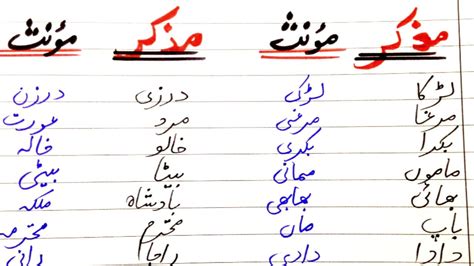 مذکر مؤنث مذکر مؤنث
لڑکا لڑکی درزی درزن
مرغا مرغی مرد عورت
بکرا بکری خالو خالہ
ماموں ممانی بیٹا بیٹی
بھائی بھابی بادشاہ ملکہ
باپ ماں محترم محترمہ
دادا دادی راجا رانی